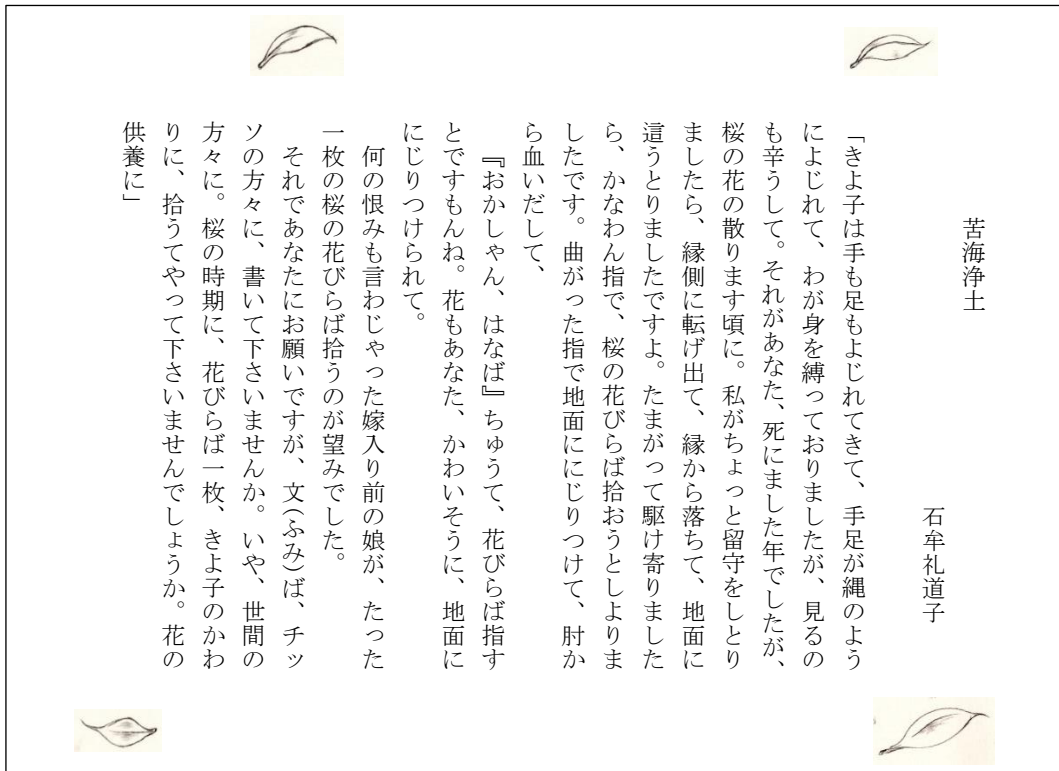 苦海浄土
石牟礼道子
「きよ子は手も足もよじれてきて、手足が縄のよう
によじれて、わが身を縛っておりましたが、見るの
も辛うして。それがあなた、死にました年でしたが、
桜の花の散ります頃に。私がちょっと留守をしとり
ましたら、縁側に転げ出て、縁から落ちて、地面に
這うとりましたですよ。たまがって駆け寄りました
ら、かなわん指で、桜の花びらば拾おうとしよりま
したです。曲がった指で地面ににじりつけて、肘か
ら血いだして、
『おかしゃん、はなば』ちゅうて、花びらば指す
とですもんね。花もあなた、かわいそうに、地面に
にじりつけられて。
何の恨みも言わじゃった嫁入り前の娘が、たった
一枚の桜の花びらば拾うのが望みでした。
それであなたにお願いですが、文(ふみ)ば、チッ
ソの方々に、書いて下さいませんか。いや、世間の
方々に。桜の時期に、花びらば一枚、きよ子のかわ
りに、拾うてやって下さいませんでしょうか。花の
供養に」